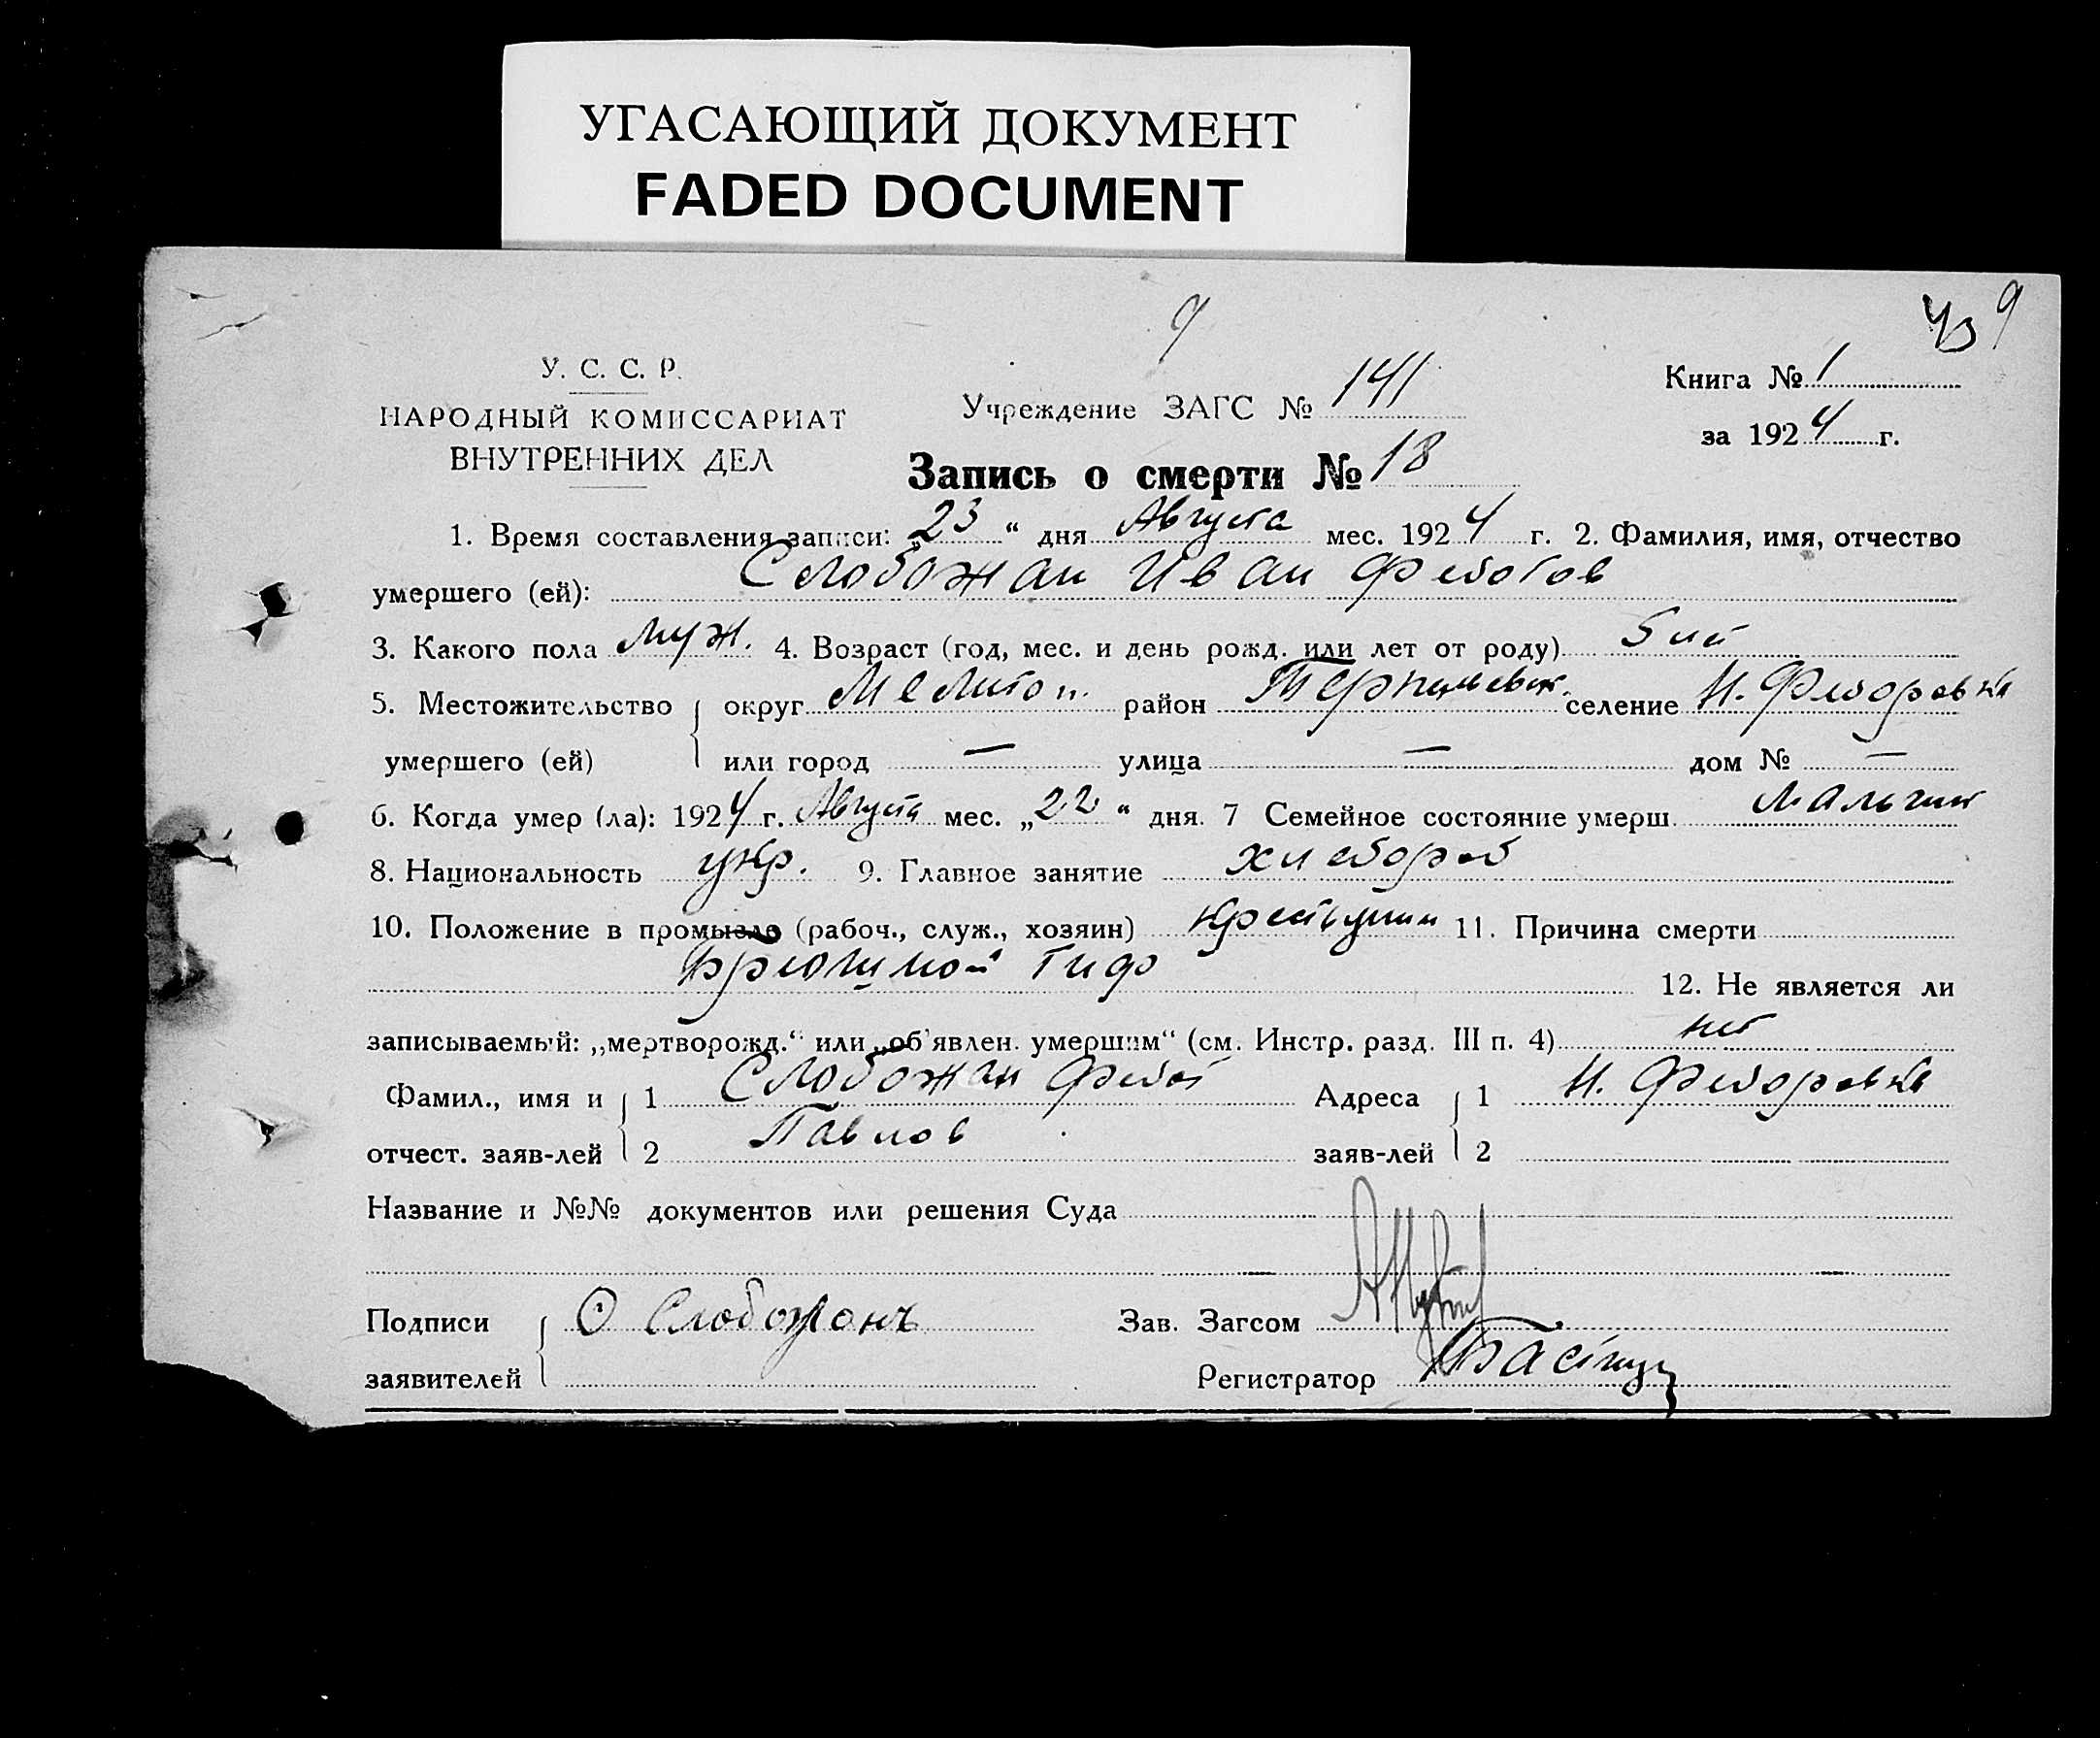 УГАСАЮЩИЙ ДОКУМЕНТ
FADED DOCUMENT
9
43 9
У. С. С. Р.
НАРОДНЫЙ КОМИССАРИАТ
ВНУТРЕННИХ ДЕЛ
Учреждение ЗАГС № 141
Книга № 1
за 1924 г.
Запись о смерти № 18
1. Время составления записи: „23“ дня Августа мес. 1924 г. 2. Фамилия, имя, отчество
умершего (ей): Слобожан Иван Федотов
3. Какого пола муж. 4. Возраст (год, мес. и день рожд. или лет от роду) 5 лет
5. Местожительство умершего (ей) { округ Мелитоп. район селение Н. Федоровка
или город — улица — дом № —
6. Когда умер (ла): 1924 г. Августа мес. „22“ дня. 7 Семейное состояние умерш. Мальчик
8. Национальность укр. 9. Главное занятие хлебороб
10. Положение в промысле (рабоч., служ., хозяин) 11. Причина смерти
Брюшной тиф
12. Не является ли
записываемый: „мертворожд.“ или „об'явлен. умершим“ (см. Инстр. разд. III п. 4) нет
Фамил., имя и отчест. заяв-лей { 1 Слобожан Федот
2 Павлов
Адреса заяв-лей { 1 Н. Федоровка
2
Название и №№ документов или решения Суда
Подписи заявителей { Слобожанъ
Зав. Загсом
Регистратор